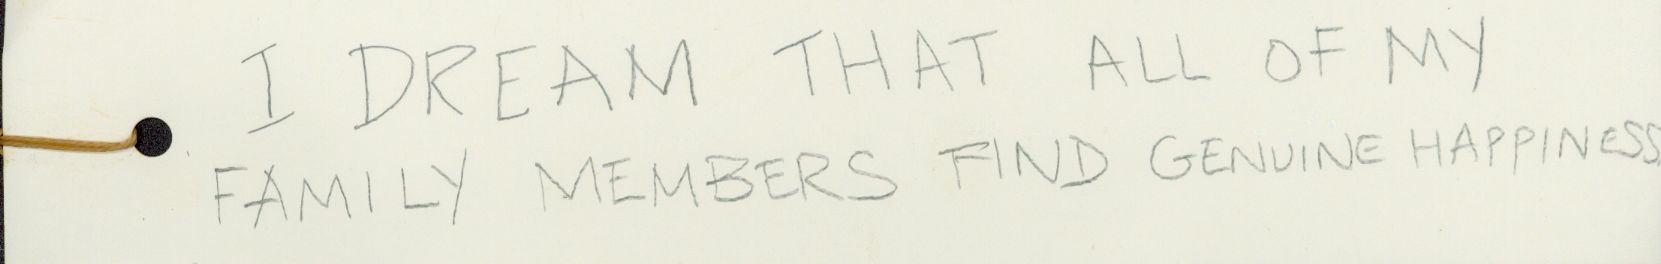 I DREAM THAT ALL OF MY
FAMILY MEMBERS FIND GENUINE HAPPINESS